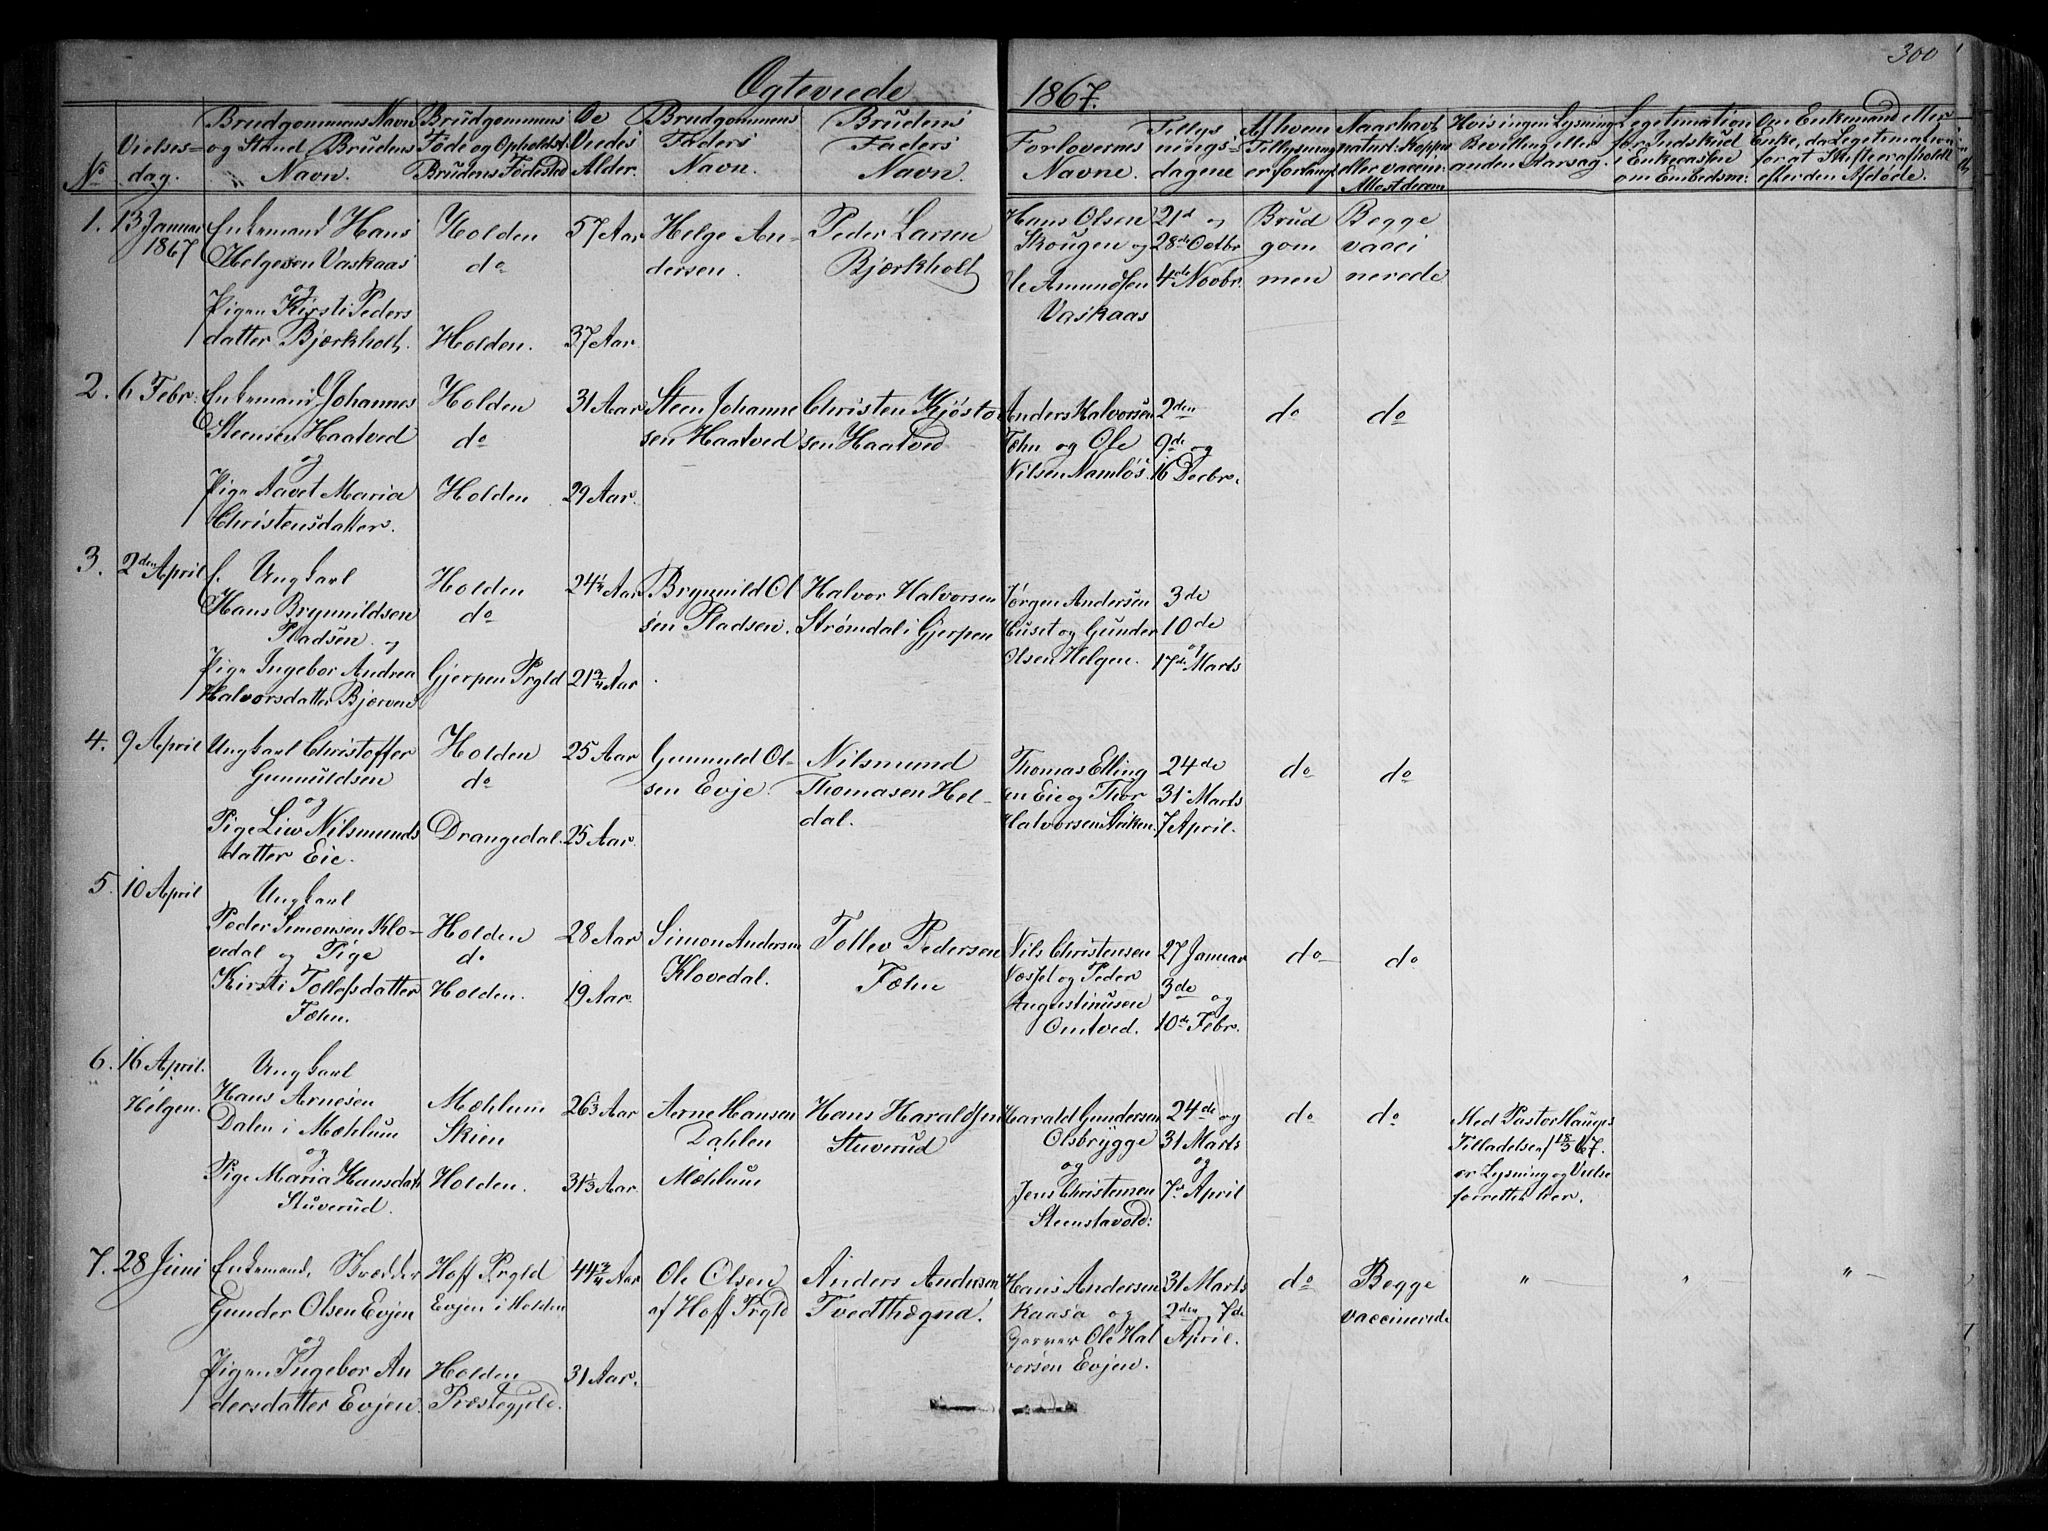 300
Ægteviede 1867.
No
Vielses=
dag.
Brudgommens Navn
og Stand Brudens
Navn.
Brudgommens
Føde og Opholdst:
Brudens Fødested
De
Viedes
Alder.
Brudgommens
Faders
Navn.
Brudens
Faders
Navn.
Forlovernes
Navne.
Tillys
nings=
dagene
Af hvem
Tillysning
er forlangt
Naar havt
naturl: Kopper
eller vaccin:
Attest derom
Hvis ingen Lysning
Bevilling eller
anden Aarsag.
Legitimation
for Indskud
i Enkecassen
om Embedsm:
Om Enkemand eller
Enke, da Legitimation
for at Skifte er afholdt
efter den Afdøde.
1.
13 Januar
1867
Enkemand Hans
Helgesen Vaskaas
og
Pigen Kirsti Peders
datter Bjørkholt.
Holden
do
Holden.
57 Aar
37 Aar
Helge An=
dersen.
Peder Larsen
Bjørkholt
Hans Olsen
Skougen og
Ole Amundsen
Vaskaas
21d og
28de Octbr
4de Novbr.
Brud
gom
men
Begge
vacci
nerede
2.
6 Febr:
Enkemand Johannes
Steensen Haatved
og
Pige Aavet Maria
Christensdatter.
Holden
do
Holden
31 Aar
29 Aar.
Steen Johanne
sen Haatved
Christen Kjøsto
sen Haatved
Anders Halvorsen
Fæhn og Ole
Nilsen Namløs
2den
9de og
16 Decbr.
do
do
3.
2den April
f. Ungkarl
Hans Brynnildsen
Pladsen og
Pige Ingebor Andrea
Halvorsdatter Bjerven
Holden
do
Gjerpen Prgld
24 1/3 Aar
21 3/4 Aar
Brynnild Ol
sen Pladsen.
Halvor Halvorsen
Strømdal i Gjerpen
Jørgen Andersen
Huset og Gunder
Olsen Helgen.
3de
10de
og
17de Marts
4.
9 April
Ungkarl Christoffer
Gunnuldsen
og
Pige Liv Nilsmunds
datter Eie.
Holden
do
Drangedal.
25 Aar
25 Aar.
Gunnuld Ol=
sen Evje.
Nilsmund
Thomasen Hel=
dal.
Thomas Elling
en Eie og Thor
Halvorsen Striken
24de
31. Marts
7 April.
do
do
5.
10 April
Ungkarl
Peder Simonsen Klo=
vedal og Pige
Kirsti Tollefsdatter
Fæhn.
Holden
do
Holden.
28 Aar
19 Aar
Simon Andersen
Klovedal.
Tollev Pedersen
Fæhn
Nils Christensen
Næset og Peder
Augustinusen
Omtved.
27 Januar
3de og
10de Febr.
do
do
6.
16 April.
Helgen.
Ungkarl
Hans Arnesen
Dalen i Mæhlum
og
Pige Maria Hansdatt
Stuverud.
Mæhlum
Skien
Holden.
26 1/3 Aar
31 1/3 Aar.
Aerne Hansen
Dahlen
Mæhlum
Hans Haraldsen
Stuverud
Harald Gundersen
Olsbrygge
og
Jens Christensen
Steenstavold:
24de og
31 Marts
og
7de April
do
do
Med Pastor Hauges
Tilladelse f 18/3 67.
er Lysning og Vielse
forrettet her.
7.
28 Juni
Enkemand, Skrædder
Gunder Olsen Evjen
og
Pigen Ingebor An
dersdatter Evjen
Hoff Prgld
Evjen i Holden
Holden
Præstegjeld.
44 3/4 Aar
31 Aar.
Ole Olsen
af Hoff Prgld
Anders Andersen
Tvedthægna.
Hans Andersen
Kaasa og
Garver Ole Hal
vorsen Evjen.
31 Marts
2den og 7de
April.
do
Begge
vaccinerede
" —
"
" —